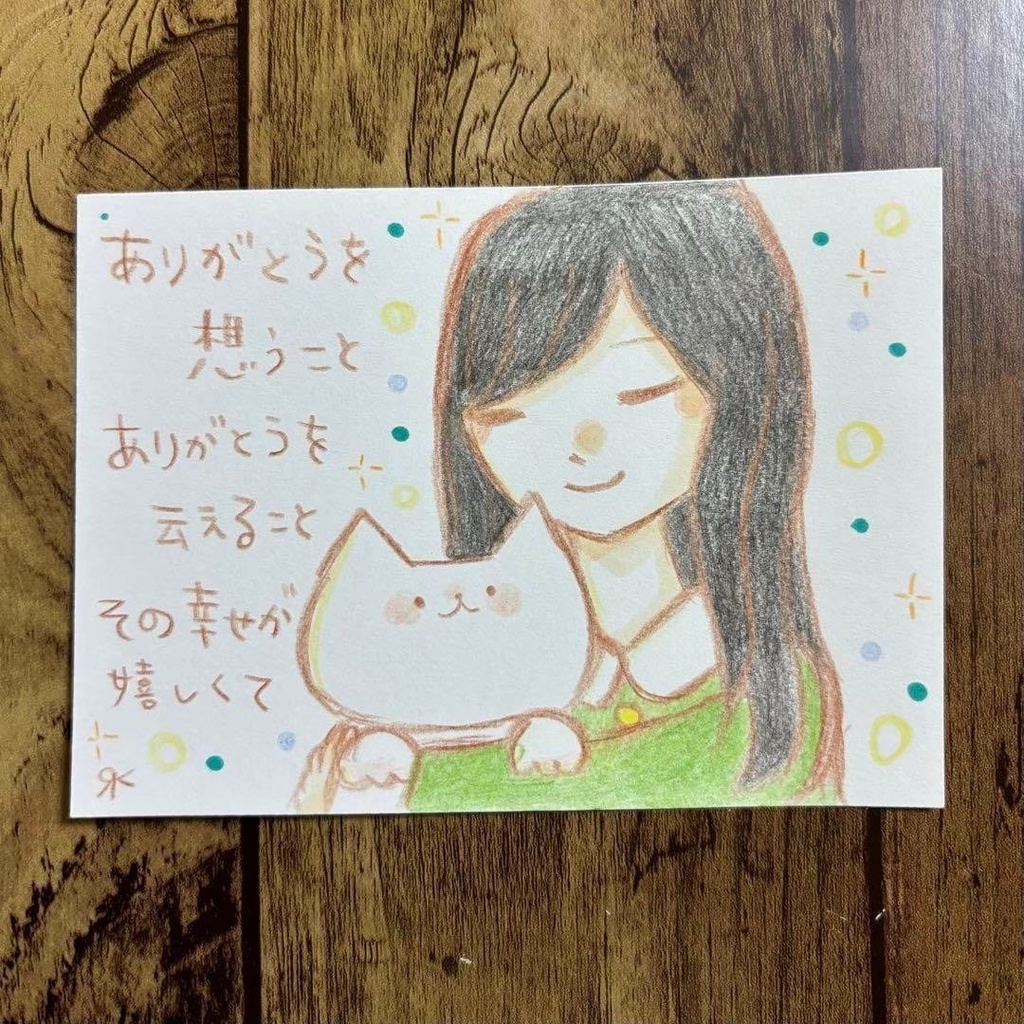 ありがとうを
想うこと
ありがとうを
云えること
その幸せが
嬉しくて